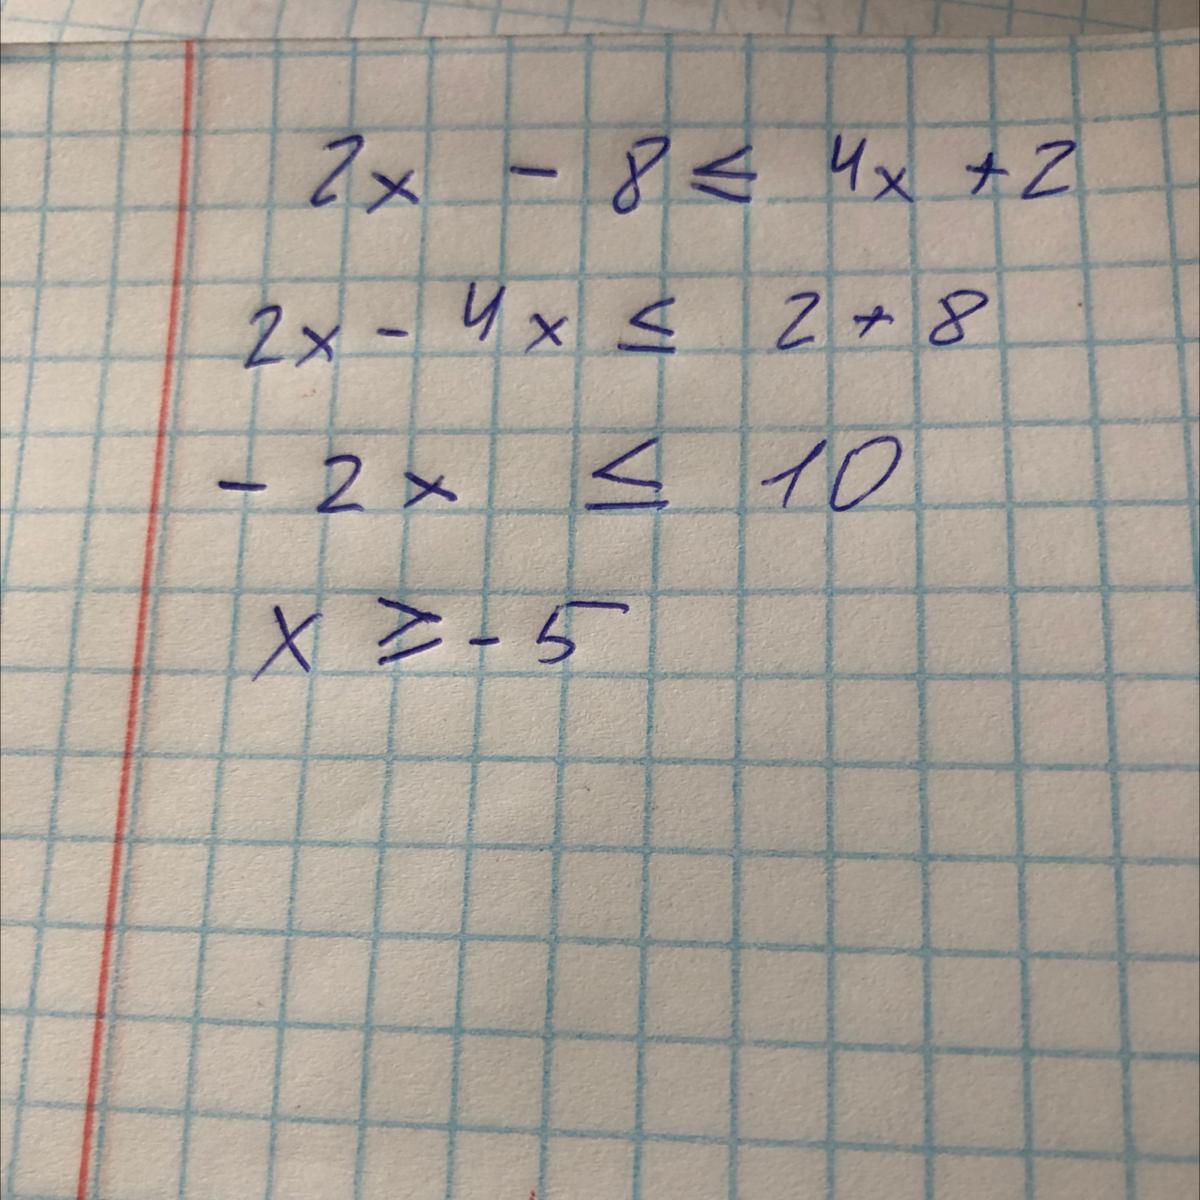 2x - 8 ≤ 4x + 2
2x - 4x ≤ 2 + 8
- 2x ≤ 10
x ≥ - 5